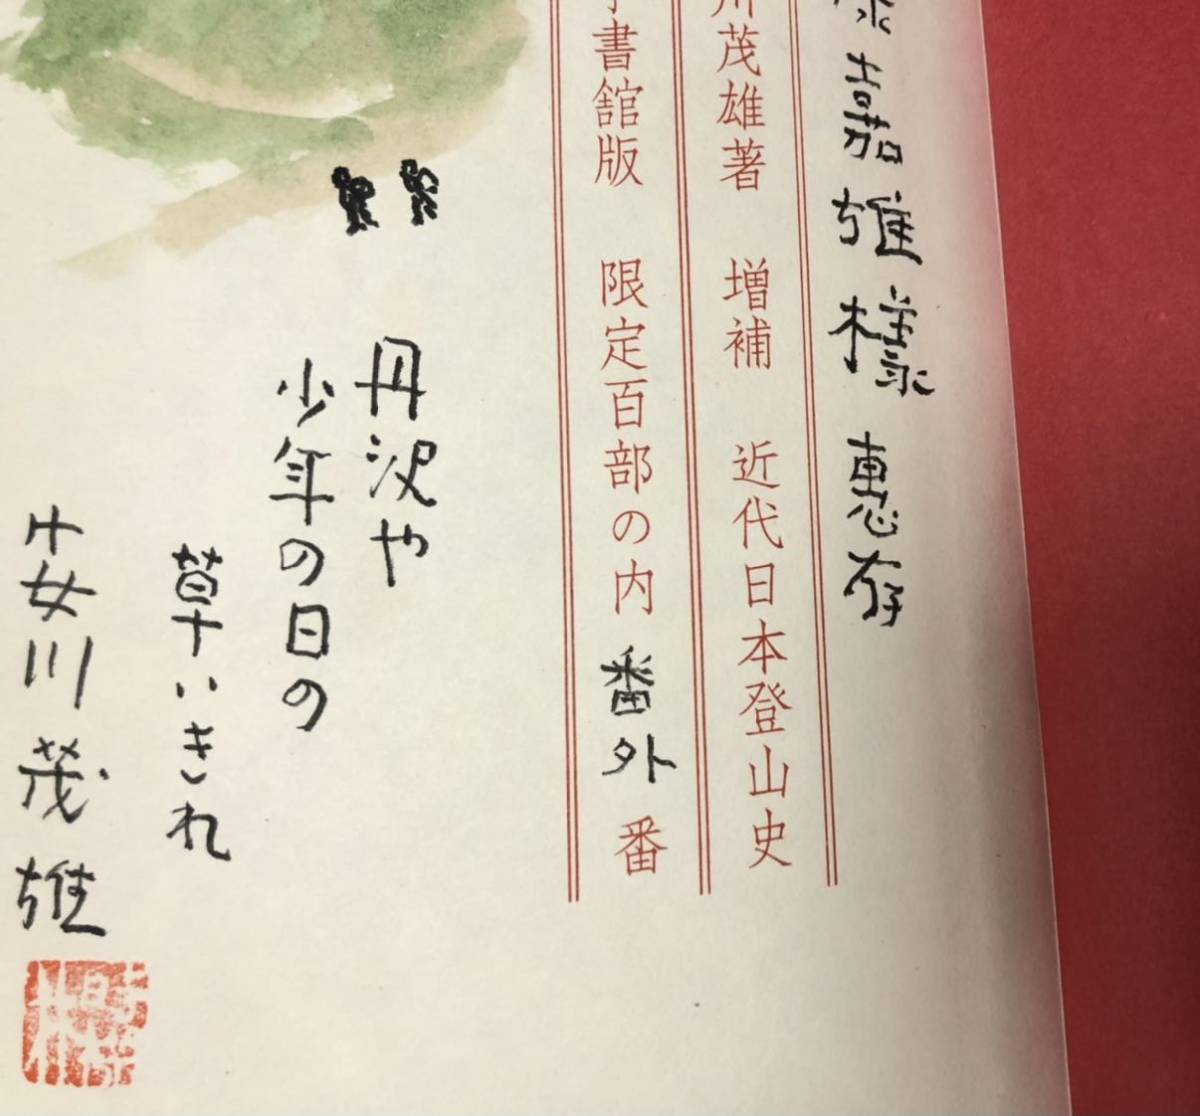 嘉雄様 惠存
川茂雄著 増補 近代日本登山史
書館版 限定百部の内 番外 番
丹沢や
少年の日の
草いきれ
安川茂雄